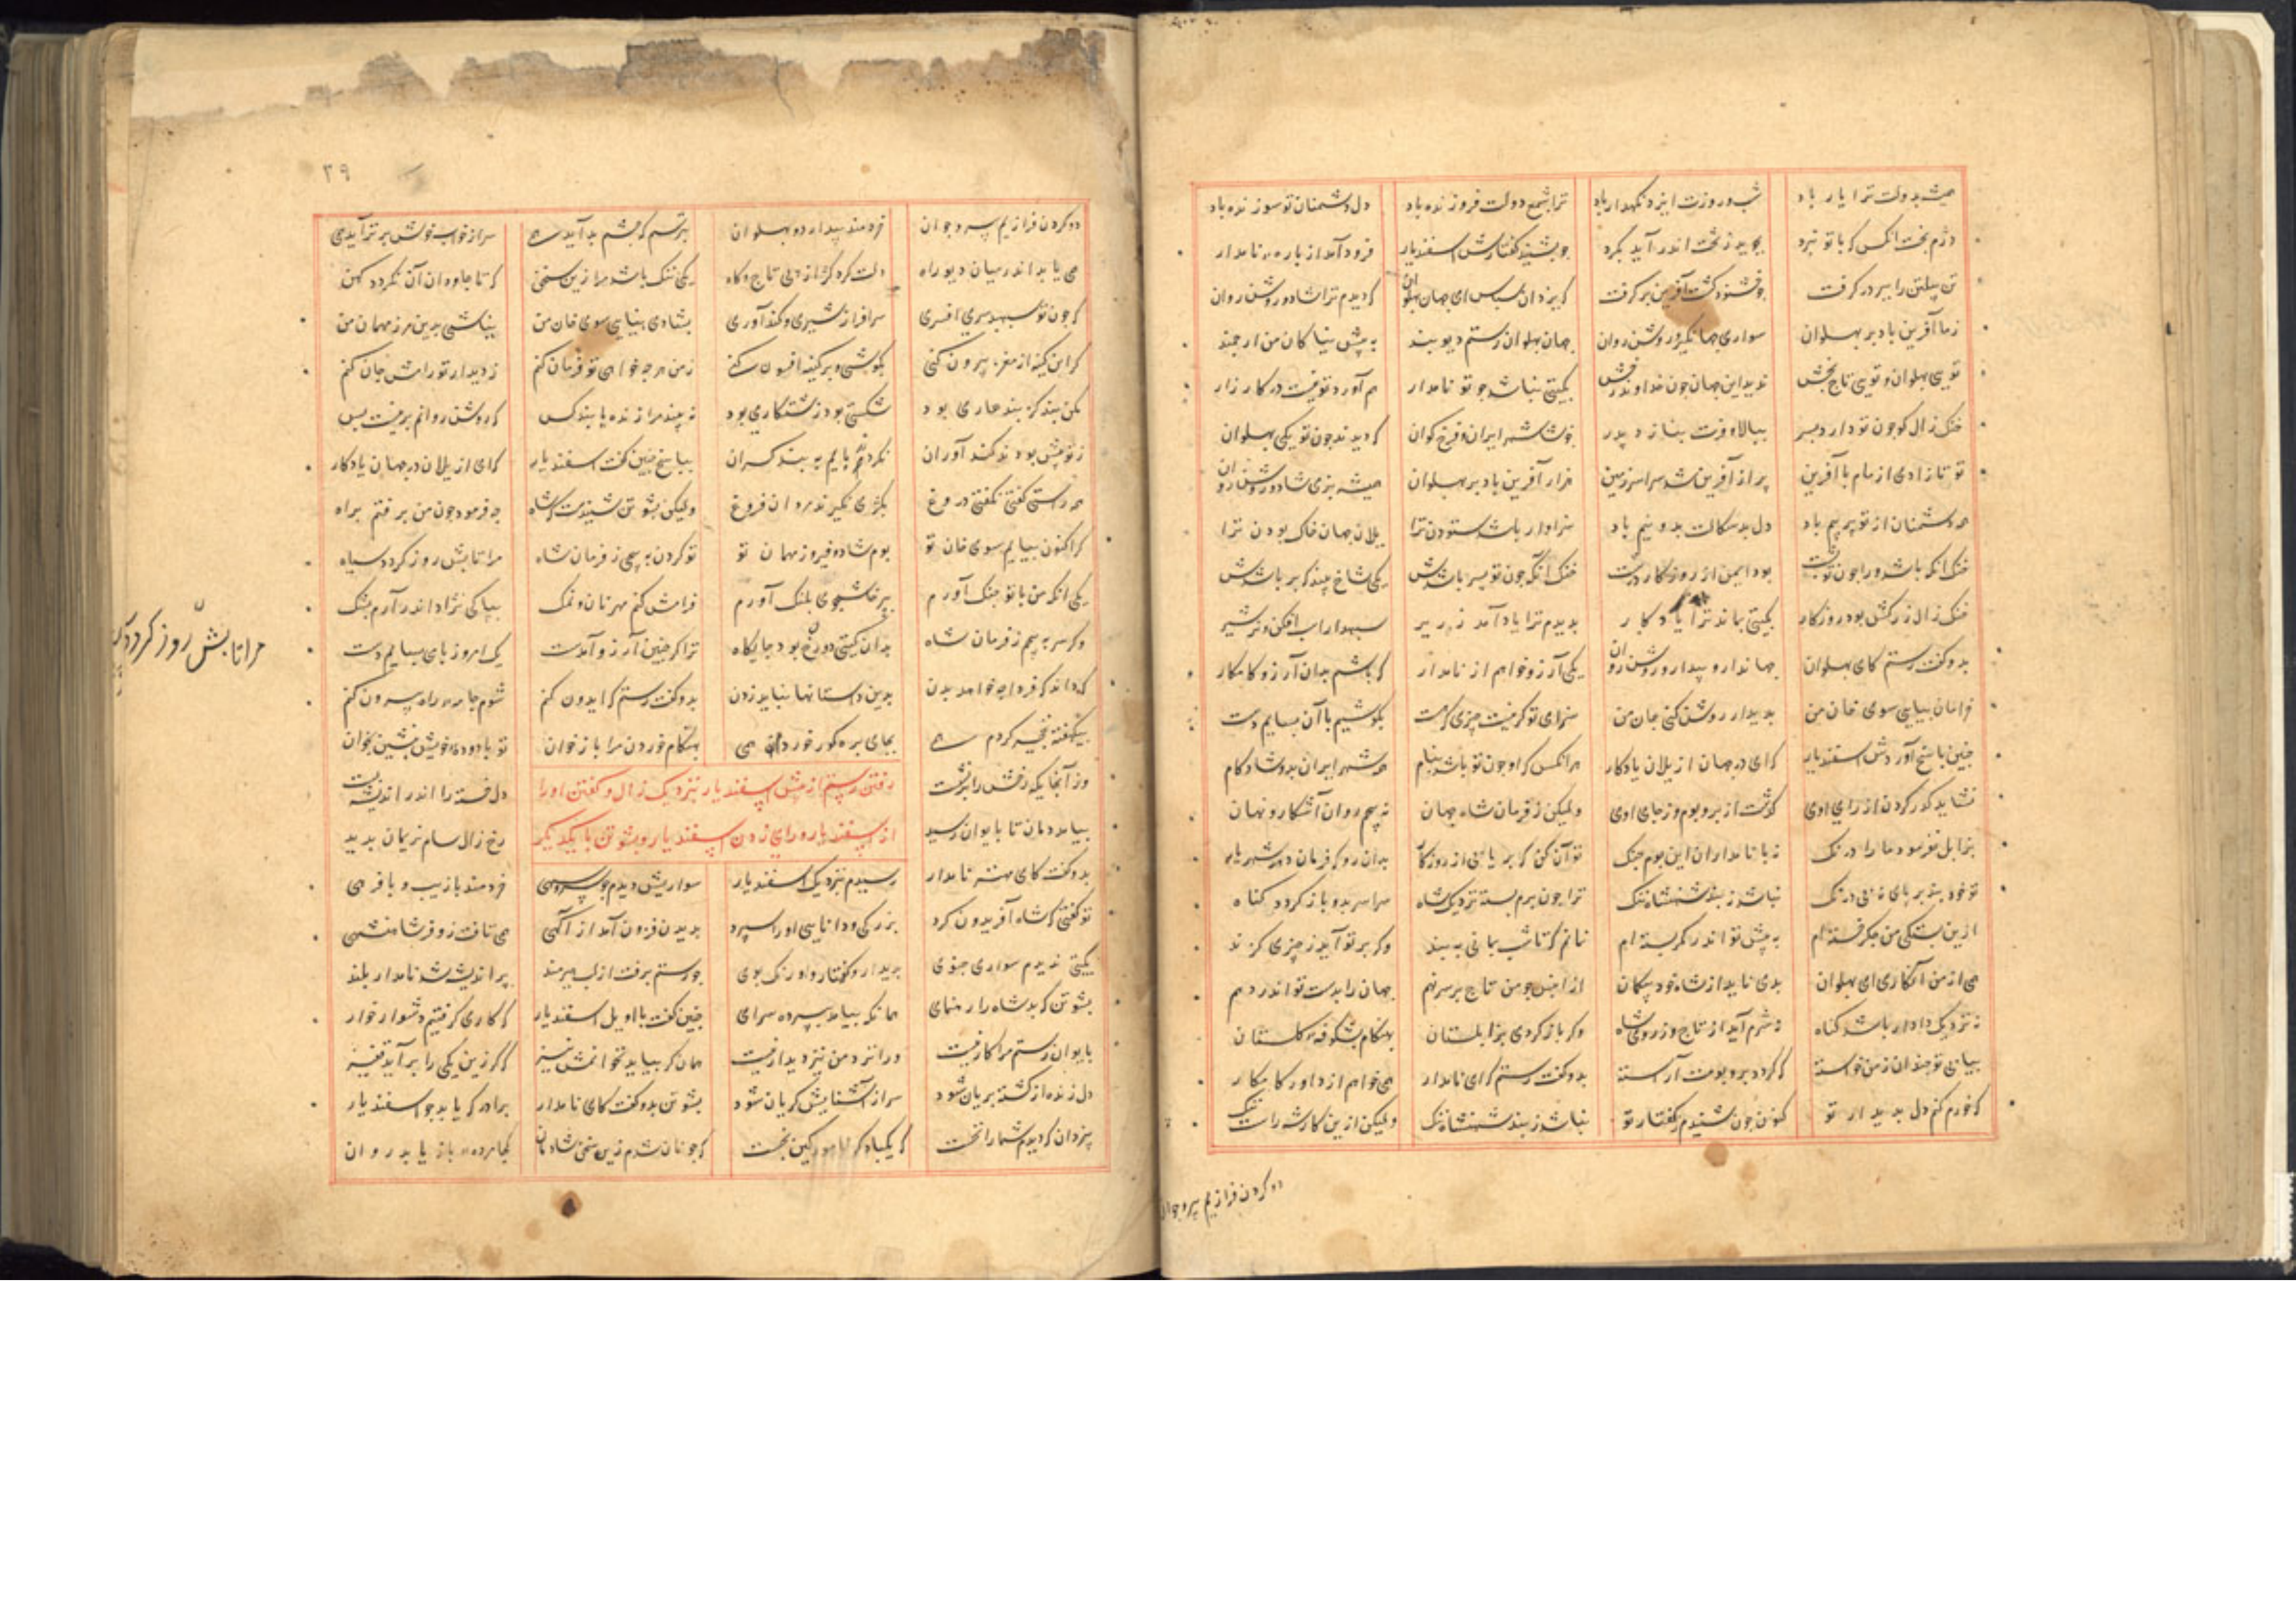 همیشه بدولت ترا یار باد شب و روزت ایزد نکهدار باد ترا شمع دولت فروزنده باد دل دشمنان تو سوزنده باد
دژم بخت آنکس که با تو نبرد بجوید ز تخت اندر آید بکرد جو بشنید کفتارش اسفندیار فرود آمد از باره نامدار
تن پیلتن را ببر در کرفت جو خشنود کشت آفرین بر کرفت که یزدان سپاس ای جهان بهلوان که دیدم ترا شاد و روشن روان
ز ما آفرین باد بر بهلوان سواری جهانکیر و روشن روان جهان بهلوان رستم دیوبند به پیش نیاکان من ارجمند
تویی بهلوان و تویی تاج بخش ندید این جهان جون خداوند رخش بکیتی نباشد جو تو نامدار هم آورد تو نیست در کارزار
خنک زال کو جون تو دارد پسر ببالا و فرت بنازد پدر خوشا شهر ایران و فرخ کوان که دیدند جون تو یکی بهلوان
تو تا زادی از مام با آفرین پر از آفرین شد سراسر زمین هزار آفرین باد بر بهلوان همیشه بزی شاد و روشن روان
همه دشمنان از تو پر بیم باد دل بدسکالت بدو نیم باد سزاوار باشد ستودن ترا یلان جهان خاک بودن ترا
خنک آنکه باشد ورا جون تو پشت بود ایمن از روزکار درشت خنک آنکه جون تو پسر باشدش یکی شاخ بیند که بر باشدش
خنک زال زر کش بود روزکار بکیتی بماند ترا یادکار بدیدم ترا یاد آمد زریر سبهدار اسب افکن و نره شیر
بدو کفت رستم که ای بهلوان جهاندار و بیدار و روشن روان یکی آرزو خواهم از نامدار که باشم بدان آرزو کامکار
خرامان بیایی سوی خان من بدیدار روشن کنی جان من سزای تو کر نیست جیزی که هست بکوشیم با آن بساییم دست
جنین باسخ آوردش اسفندیار که ای در جهان از یلان یادکار هر آنکس کرا و جون تو باشد بنام همه شهر ایران بدو شادکام
نشاید کذر کردن از رای اوی کذشت از بر و بوم وز جای اوی ولیکن ز فرمان شاه جهان نه پیچم روان آشکار و نهان
بزابل نفرمود ما را درنک نه با نامداران این بوم جنک تو آن کن که بر یابی از روزکار بدان رو که فرمان دهد شهریار
تو خود بند بر پای نه بی درنک نباشد ز بند شهنشاه ننک ترا جون برم بسته نزدیک شاه سراسر بدو باز کردد کناه
ازین بستکی من جکر خسته‌ام به پیش تو اندر کمر بسته‌ام نمانم که تا شب بمانی به بند وکر بر تو آید ز جیزی کزند
همی از من آنکاری ای بهلوان بدی ناید از شاه خود بیکمان از آنپس جو من تاج بر سر نهم جهان را بدست تو اندر دهم
نه نزدیک دادار باشد کناه نه شرم آید از تاج وز روی شاه وکر باز کردی بزابلستان بهنکام بشکوفه کلستان
بیابی تو جندان ز من خواسته که کردد بر و بومت آراسته بدو کفت رستم که ای نامدار همی خواهم از داور کامکار
که خرم کنم دل بدیدار تو کنون جون شنیدم ز کفتار تو نباشد ز بند شهنشاه ننک ولیکن ازین کار شه راست ننک
دو کردن فرازیم پیر و جوان
۳۹
دو کردن فرازیم پیر و جوان خردمند بیدار دو بهلوان بترسم که جشم بد آید همی سر از خواب خوش بر تر آید همی
همی یابد اندر میان دیو راه دلت کرد کژ از پی تاج و کاه یکی ننک باشد مرا زین سخن که تا جاودان آن نکردد کهن
که جون تو سپهبد سری افسری سرافراز شیری و کندآوری بشادی نیایی سوی خان من نباشی بدین مرز مهمان من
کر این کینه از مغز بیرون کنی بکوشی و بر کینه افسون کنی ز من هر جه خواهی تو فرمان کنم ز دیدار تو رامش جان کنم
مکن بند کز بند عاری بود شکستی بود زشتکاری بود نه بیند مرا زنده با بند کس که روشن روانم برینست بس
ز تو پیش بودند کندآوران نکردند پایم به بند کران بباسخ جنین کفت اسفندیار که ای از یلان در جهان یادکار
همه راستی کفتی نکفتی دروغ بکژی نکیرند مردان فروغ ولیکن پشوتن شنیدست که شاه جه فرمود جون من برفتم براه
کر اکنون بیایم سوی خان تو بوم شاد و فیروز مهمان تو تو کردن به پیچی ز فرمان شاه مرا تابش روز کردد سیاه
یکی آنکه من با تو جنک آورم بپرخاشجوی بلنک آورم فرامش کنم مهر نان و نمک بپاکی نژاد اندر آرم بشک
وکر سر به پیچم ز فرمان شاه بدان کیتی دوزخ بود جایکاه ترا کر جنین آرزو آمدست یک امروز با می بساییم دست
که داند که فردا جه خواهد بدن بدین داستانها نباید زدن بدو کفت رستم که ایدون کنم شوم جامه راه بیرون کنم
بیکهفته نخجیر کردم همی بجای بره کور خوردم همی بهنکام خوردن مرا باز خوان تو با دوده خویش بنشین بخوان
وز آنجایکه رخش را برنشست رفتن رستم از پیش اسفندیار نزدیک زال و کفتن او را دل خسته را اندر اندیشه بست
بیامد دمان تا بایوان رسید از اسفندیار و رای زدن اسفندیار و پشوتن با یکدیکر رخ زال سام نریمان بدید
بدو کفت کای مهتر نامدار رسیدم نزدیک اسفندیار سواریش دیدم جو سرو سهی خردمند با زیب و با فرهی
تو کفتی که شاه آفریدون کرد بزرکی و دانایی او را سپرد بدیدن فزون آمد از آکهی همی تافت زو فر شاهنشهی
بکیتی ندیدم سواری جنوی بدیدار و کفتار و اورنک بوی جو رستم برفت از لب هیرمند پر اندیشه شد نامدار بلند
پشوتن که بد شاه را رهنمای همانکه بیامد ببرده سرای جنین کفت با او یل اسفندیار که کاری کرفتیم دشوار خوار
بایوان رستم مرا کار نیست ورا نزد من نیز دیدار نیست همان کر بیاید نخوانمش نیز کر زین یکی را بر آید قفیز
دل زنده از کشته بریان شود سر از آشنایش کریان شود پشوتن بدو کفت کای نامدار برادر که یابد جو اسفندیار
بیزدان که دیدم شما را نخست که یکباره کین نجست که جونان شدم زین سخن شادمان
مرا تابش روز کردد